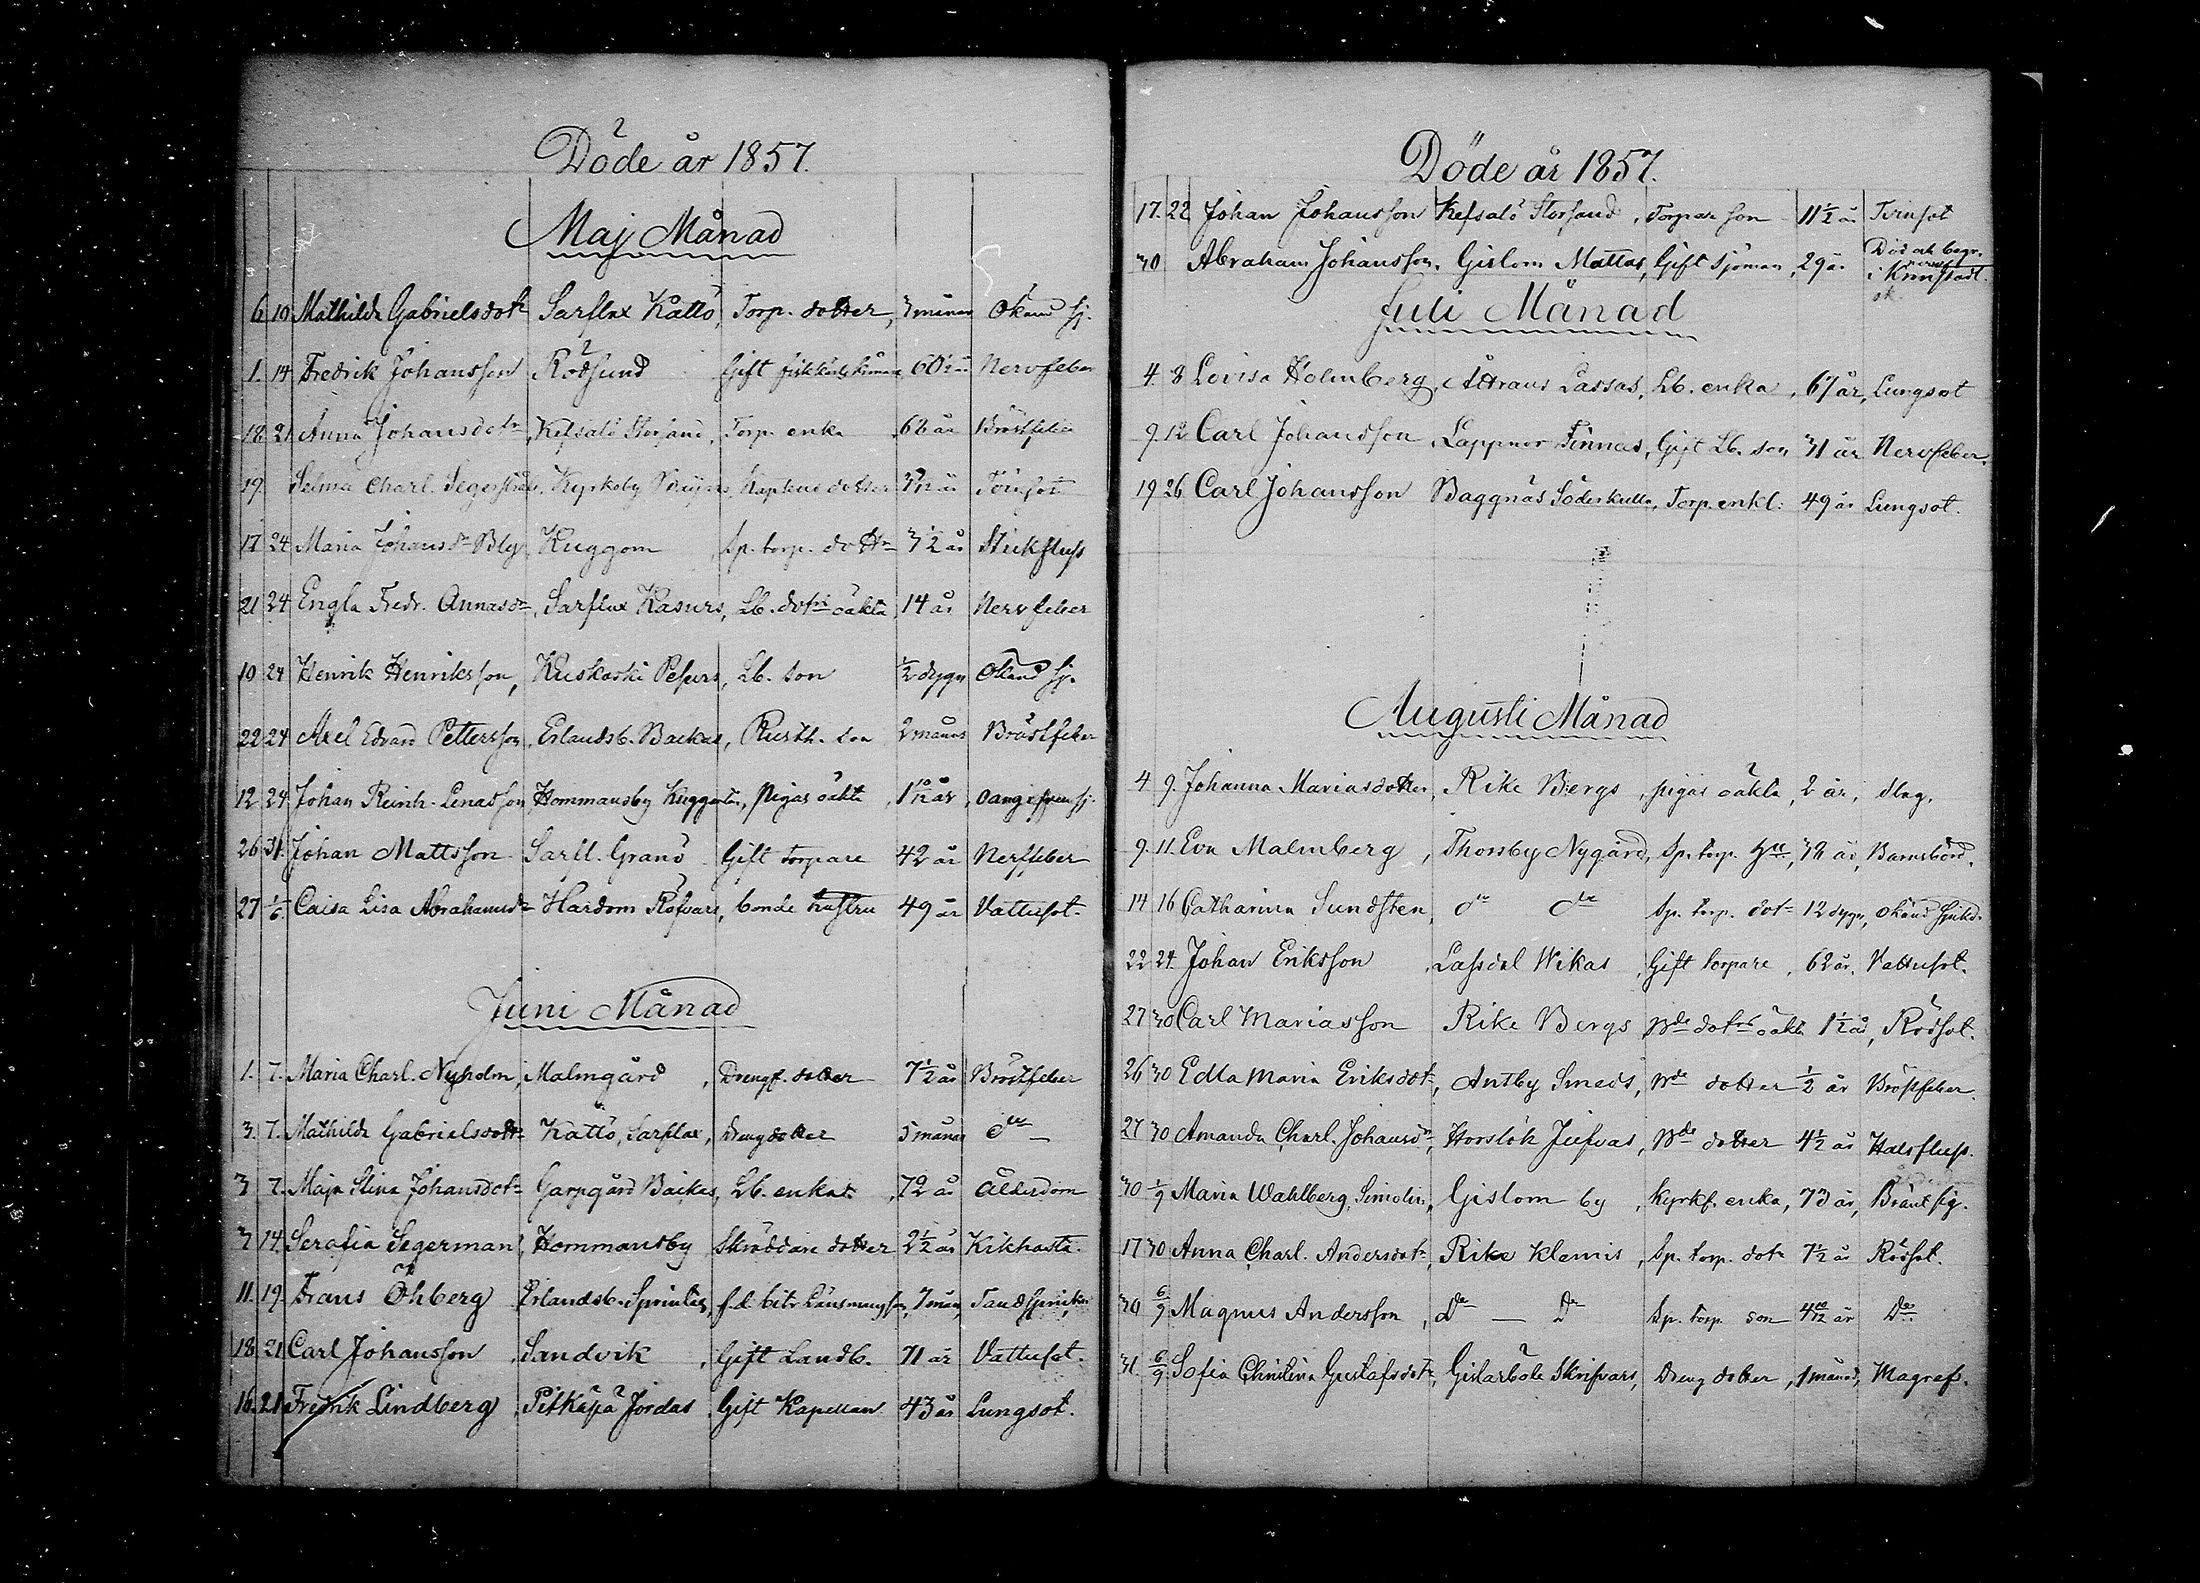 Döde år 1857.
Maj Månad
6 10 Mathilda Gabrielsdotr Sarflax Kattö, Torp. dotter, 3 månar Okänd sj.
1. 14 Fredrik Johansson Rödsund Gift 60½ år Nervfeber
18 21 Anna Johansdotr, Kefsalö Storsand, Torp. enka 62 år Bröstfeber
19 Selma Charl. Kyrkoby dotter Tvinsot
17 24 Maria Johansdr Bly, Kuggom, Sp. torp. dottr 3½ år Stickfluss
21 24 Engla Fredr. Annasdr, Sarflax Kasurs, Lb. dotrs oäkta 14 år Nervfeber
19 24 Henrik Henriksson, Kuskoski Pesurs, Lb. son ½ dygn Okänd sj.
22 24 Axel Edvard Pettersson, Erlandsb. Backas, Rusth. son 2 månar Bröstfeber
12 24 Johan Reinh. Lenasson, Hommansby pigas oäkta, 1 10/12 år, oangifven sj.
26 31. Johan Mattsson Sarfl. Granö Gift Torpare 42 år Nerffeber
27 1/6 Caisa Lisa Abrahamsdr Hardom Röfvars, bonde hustru 49 år Vattusot.
Juni Månad
1. 7. Maria Charl. Nyholm, Malmgård, Drengf. dotter 7½ år Bröstfeber
3. 7. Mathilda Gabrielsdottr Kattö, Sarflax, Dreng dotter 5 månar do
3 7. Maja Stina Johansdotr Garpgård Backas, Lb. enka 72 år Ålderdom
3 14. Serafia Segerman, Hommansby Skräddare dotter 2½ år Kikhosta.
11. 19. Frans Öhberg Erlandsb. f. d. bitr. Länsmans son, 7 mån,
18 21 Carl Johansson, Sandvik, Gift Landb. 71 år Vattusot.
16. 21 Fredrik Lindberg, Pitkäpä Jordas Gift Kapellan 43 år Lungsot.
Döde år 1857.
17. 22 Johan Johansson Kefsalö Storsand, Torpar son 11½ år Tvinsot
30 Abraham Johansson, Gislom Mattas, Gift Sjöman, 29 år Död och begr.
i Kronstadt
Juli Månad
4. 8 Lovisa Holmberg, Åttraus Lassas, Lb. enka, 67 år, Lungsot
9. 12 Carl Johansson Lappnor Finnas, Gift Lb. son 31 år Nervfeber.
19 26 Carl Johansson Baggnäs Söderkulla, Torp. enkl. 49 år Lungsot.
Augusti Månad
4 9. Johanna Mariasdotter, Rike Bergs, pigas oäkta, 2 år, slag.
9. 11. Eva Malmberg, Thorsby Nygård, Sp. torp. hu, 38 år, Barnsbörd.
14 16 Catharina Sundsten, do do Sp. torp. dotr 12 dygn, okänd sjukd.
22 24. Johan Eriksson, Lassdal Wikas, Gift torpare, 62 år, Vattusot.
27 30 Carl Mariasson Rike Bergs Bde dotrs oäkta 1½ år, Rödsot.
26 30 Edla Maria Eriksdotr, Antby Smeds, Bde dotter ½ år Bröstfeber.
27 30 Amanda Charl. Johansdr, Horslök Jufvas, Bde dotter 4½ år Halsfluss.
30 1/9 Maria Wahlberg, Simolin, Gislom by, Kyrkf. enka, 73 år, Bråntsj.
17 30 Anna Charl. Andersdotr, Rike Klamis, Sp. torp. dotr 7½ år Rödsot.
30 6/9 Magnus Andersson, Do — Do Sp. torp. son 4 10/12 år Do
31. 6/9 Sofia Christina Gustafsdotr, Gislarböle Skrifvars, Dreng dotter, 1 månad, Magref.